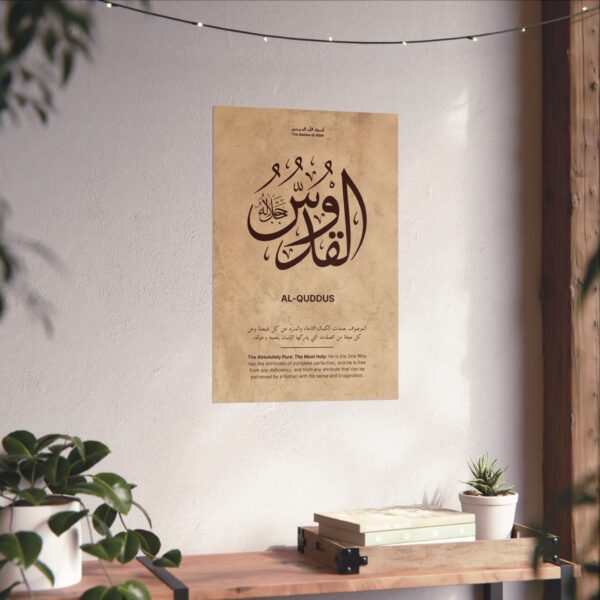 أسماء الله الحسنى
The Names of Allah
القدوس
جل جلاله
AL-QUDDUS
الموصوف بصفات الكمال التامة، والمنزه عن كل نقيصة وعن
كل صفة من الصفات التي يدركها الإنسان بحسه وخياله.
The Absolutely Pure: The Most Holy: He is the One Who
has the attributes of complete perfection, and He is free
from any deficiency, and from any attribute that can be
perceived by a human with his sense and imagination.
HOME